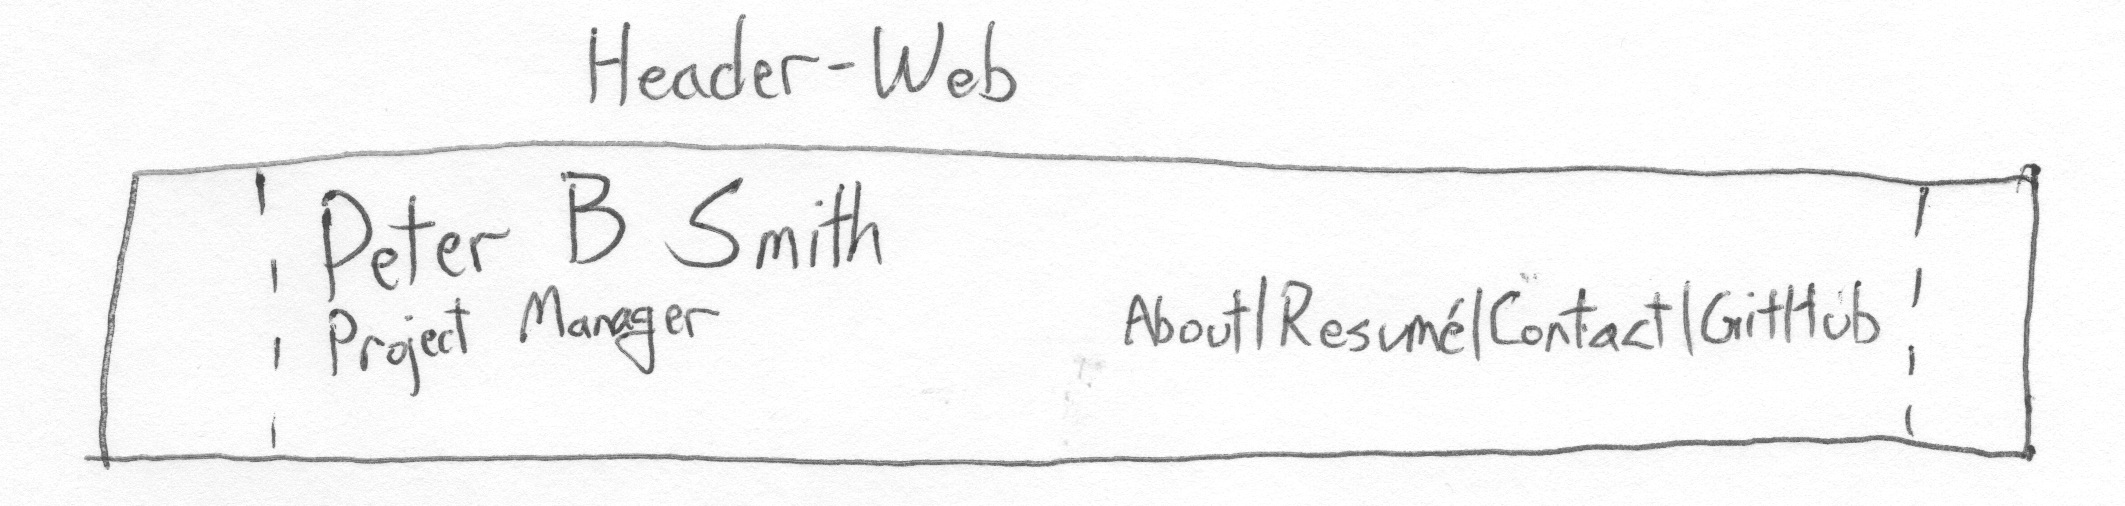 Header-Web
Peter B Smith
Project Manager
About|Resumé|Contact|GitHub